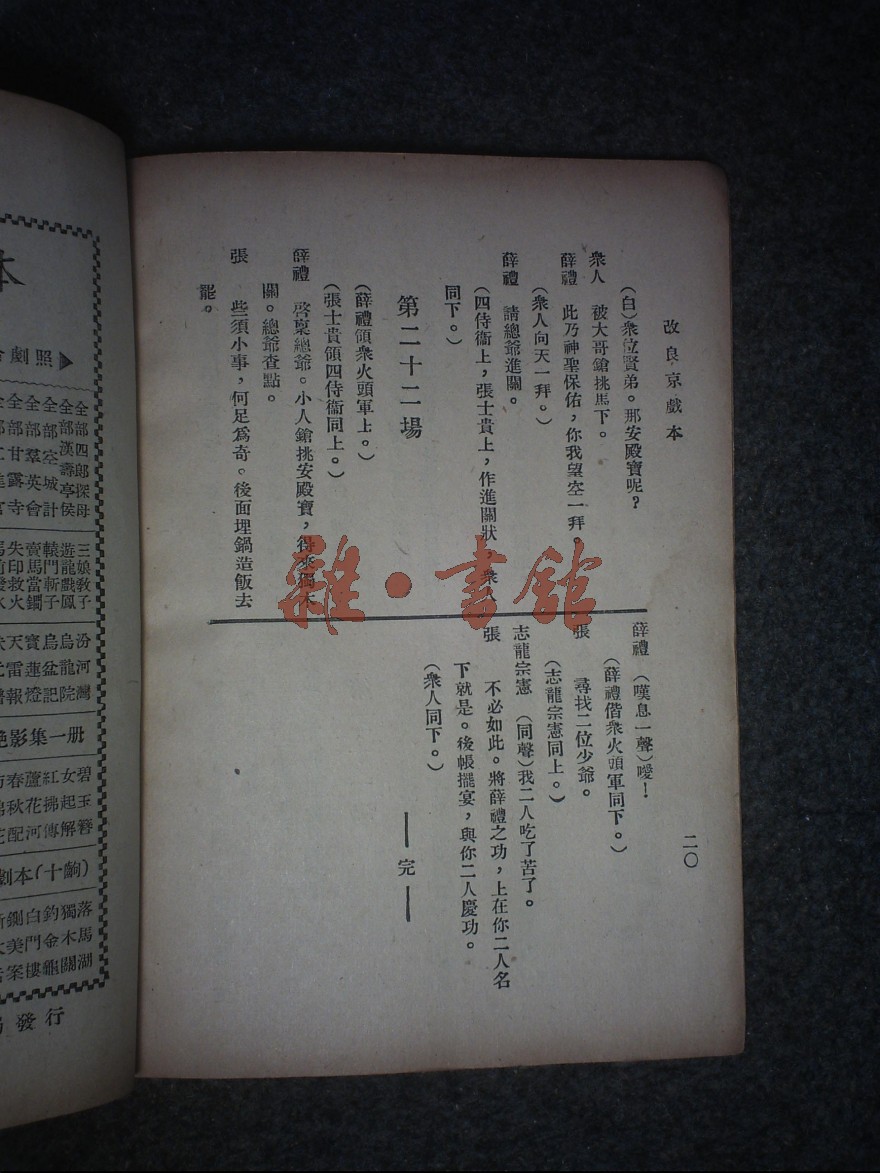 改良京戲本
(白)衆位賢弟。那安殿寶呢?
衆人 被大哥鎗挑馬下。
薛禮 此乃神聖保佑,你我望空一拜。
(衆人向天一拜。)
薛禮 請總爺進關。
(四侍衞上,張士貴上,作進關狀,衆人
同下。)
第二十二場
(薛禮領衆火頭軍上。)
(張士貴領四侍衞同上。)
薛禮 啓稟總爺。小人鎗挑安殿寶,得來獨木
關。總爺查點。
張 些須小事,何足爲奇。後面埋鍋造飯去
罷。
薛禮 (嘆息一聲)噯!
(薛禮偕衆火頭軍同下。)
張 尋找二位少爺。
(志龍宗憲同上。)
志龍宗憲 (同聲)我二人吃了苦了。
張 不必如此。將薛禮之功,上在你二人名
下就是。後帳擺宴,與你二人慶功。
(衆人同下。)
——完——
二〇
雜·書館
本
劇照▶
全部四郎探母
全部漢壽亭侯
全部空城計
全部羣英會
全部甘露寺
三娘教子
遊龍戲鳳
轅門斬子
賣馬當鐧
失印救火
汾河灣
烏龍院
烏盆記
寶蓮燈
天雷報
影集一册
碧玉簪
女起解
紅拂傳
蘆花河
春秋配
劇本(十齣)
落馬湖
獨木關
釣金龜
白門樓
鍘美案
發行